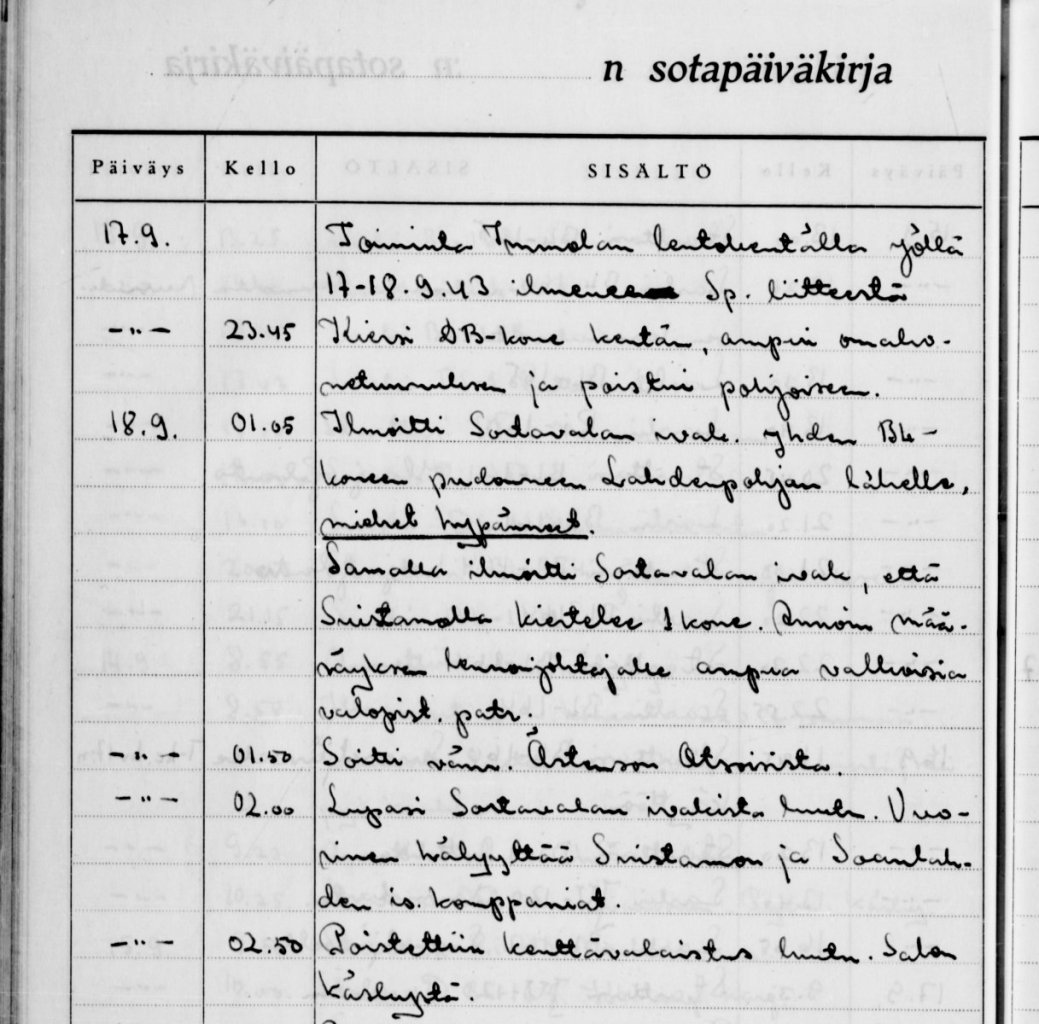 n sotapäiväkirja
Päiväys Kello SISÄLTÖ
17.9. Toiminta Immolan lentokentällä yöllä
17-18.9.43 ilmenee Sp. liitteestä
-"- 23.45 Kiersi DB-kone kentän, ampui omako-
netunnuksen ja poistui pohjoiseen.
18.9. 01.05 Ilmoitti Sortavalan ivak. yhden Bl-
koneen pudonneen Lahdenpohjan lähelle,
miehet hypänneet.
Samalla ilmoitti Sortavalan ivak, että
Suistamolla kiertelee 1 kone. Annoin mää-
räyksen lennonjohtajalle ampua valkoisia
valopist. patr.
-"- 01.50 Soitti vänr. Artenson Otsoisista.
-"- 02.00 Lupasi Sortavalan ivakista luutn. Vuo-
rinen hälyyttää Suistamon ja Soanlah-
den is. komppaniat.
-"- 02.50 Poistettiin kenttävalaistus luutn. Salon
käskystä.